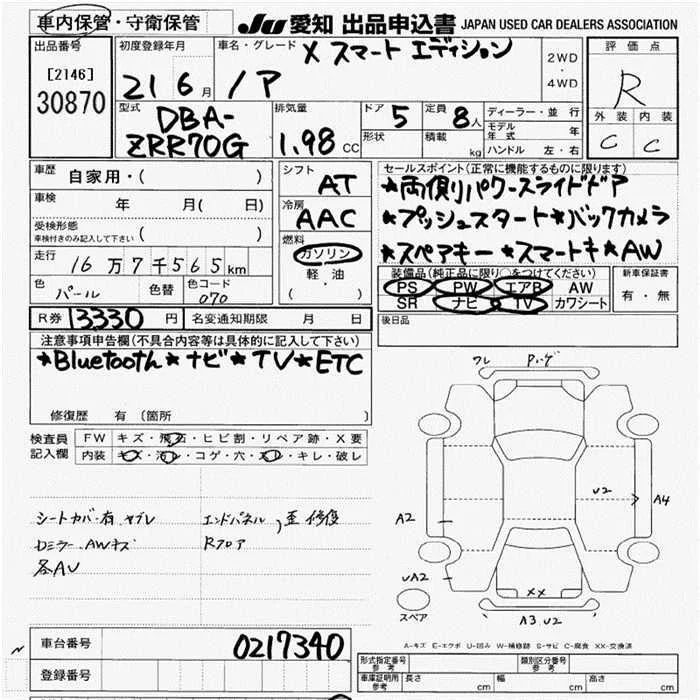 車内保管・守衛保管
JU 愛知 出品申込書 JAPAN USED CAR DEALERS ASSOCIATION
出品番号 [2146] 30870
初度登録年月 21 6月
車名・グレード X スマート エディション
/ ア
2WD・4WD
評価点 R
外装 内装
C C
型式 DBA-ZRR70G
排気量 1.98 CC
ドア 5
形状
定員 8人
積載 kg
ディーラー・並行
モデル年式 年
ハンドル 左・右
車歴 自家用・( )
車検 年 月( 日)
受検形態
車検付きのみ記入して下さい ( )
走行 16万7千565km
色 パール 色替 色コード 070
シフト AT
冷房 AAC
燃料 ガソリン
軽油
( ・ )
セールスポイント(正常に機能するものに限ります)
★両側パワースライドドア
★プッシュスタート★バックカメラ
★スペアキー★スマートキー★AW
装備品(純正品に限り○をつけてください)
PS PW エアB AW
SR ナビ TV カワシート
新車保証書
有・無
R券 13330円 名変通知期限 月 日
後日品
注意事項申告欄(不具合内容等は具体的に記入して下さい)
★Bluetooth★ナビ★TV★ETC
修復歴 有 (箇所 )
検査員記入欄
FW キズ・飛石・ヒビ割・リペア跡・X要
内装 キズ・汚レ・コゲ・穴・スレ・キレ・破レ
シートカバー有
エンドパネル、歪修復
AWキズ
Rフロア
各AU
ワレ
U2
A4
A2
UA2
XX
A3.U2
スペア
A-キズ E-エクボ U-凹み W-補修跡 S-サビ C-腐食 XX-交換済
車台番号 0217340
登録番号
形式指定番号 参考
類別区分番号 参考
車庫証明用 参考 長さ cm 幅 cm 高さ cm